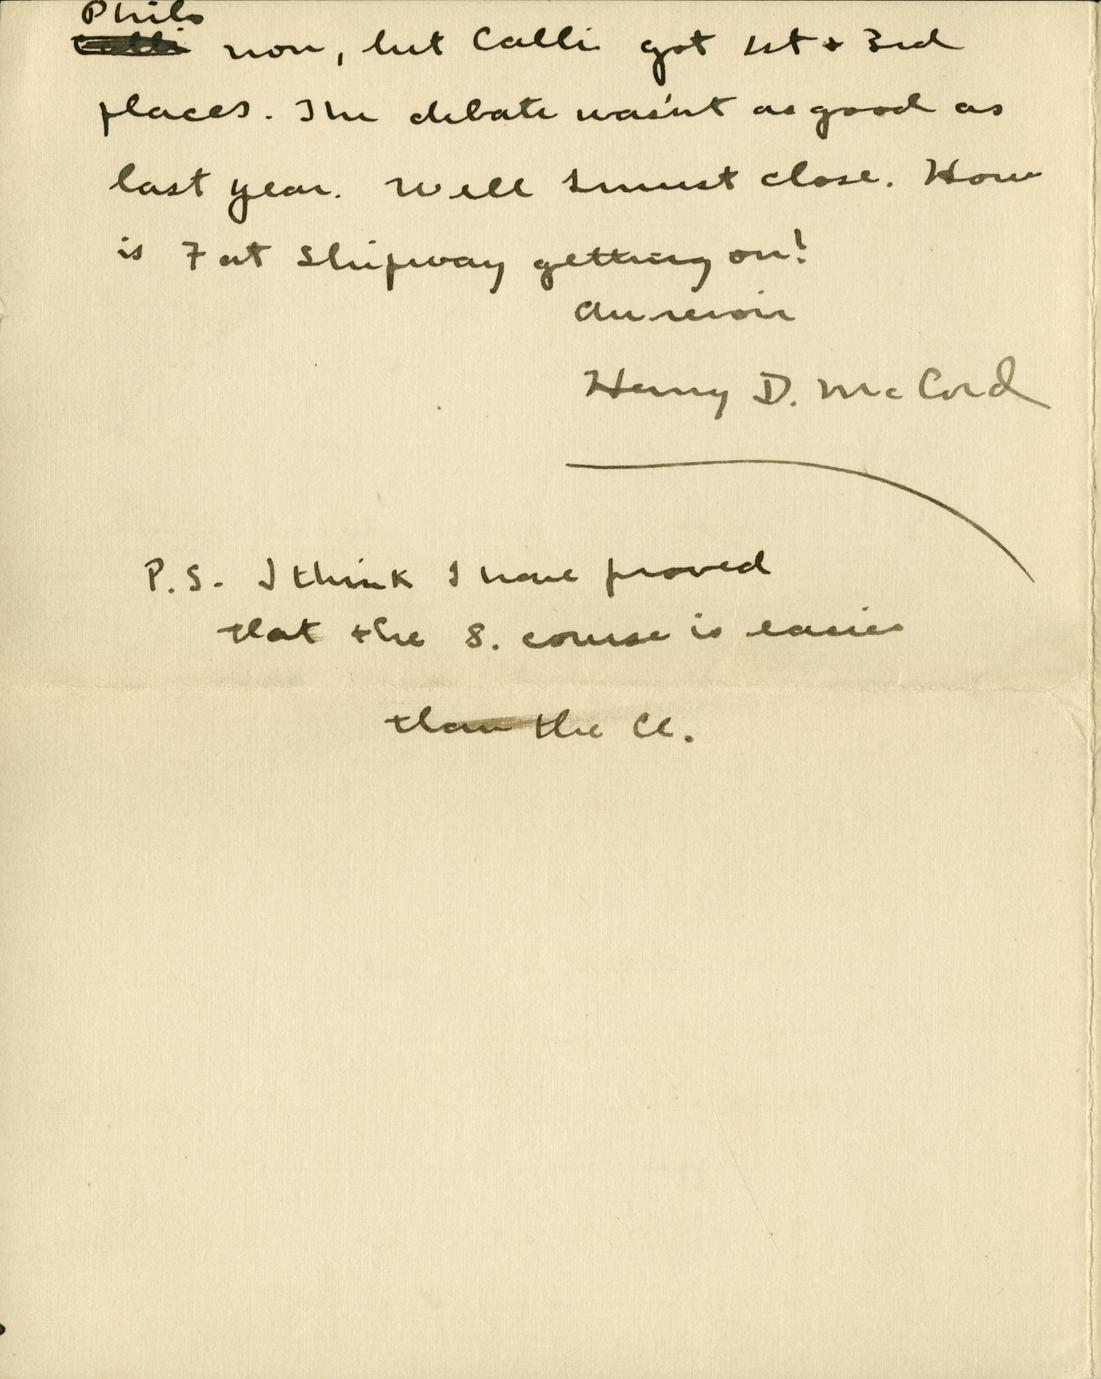 Philo
Calli won, but Calli got 1st & 3rd
places. The debate wasn't as good as
last year. Well I must close. How
is Fat Shipway getting on?
Au revoir
Henry D. McCord
P.S. I think I have proved
that the S. course is easier
than the Cl.